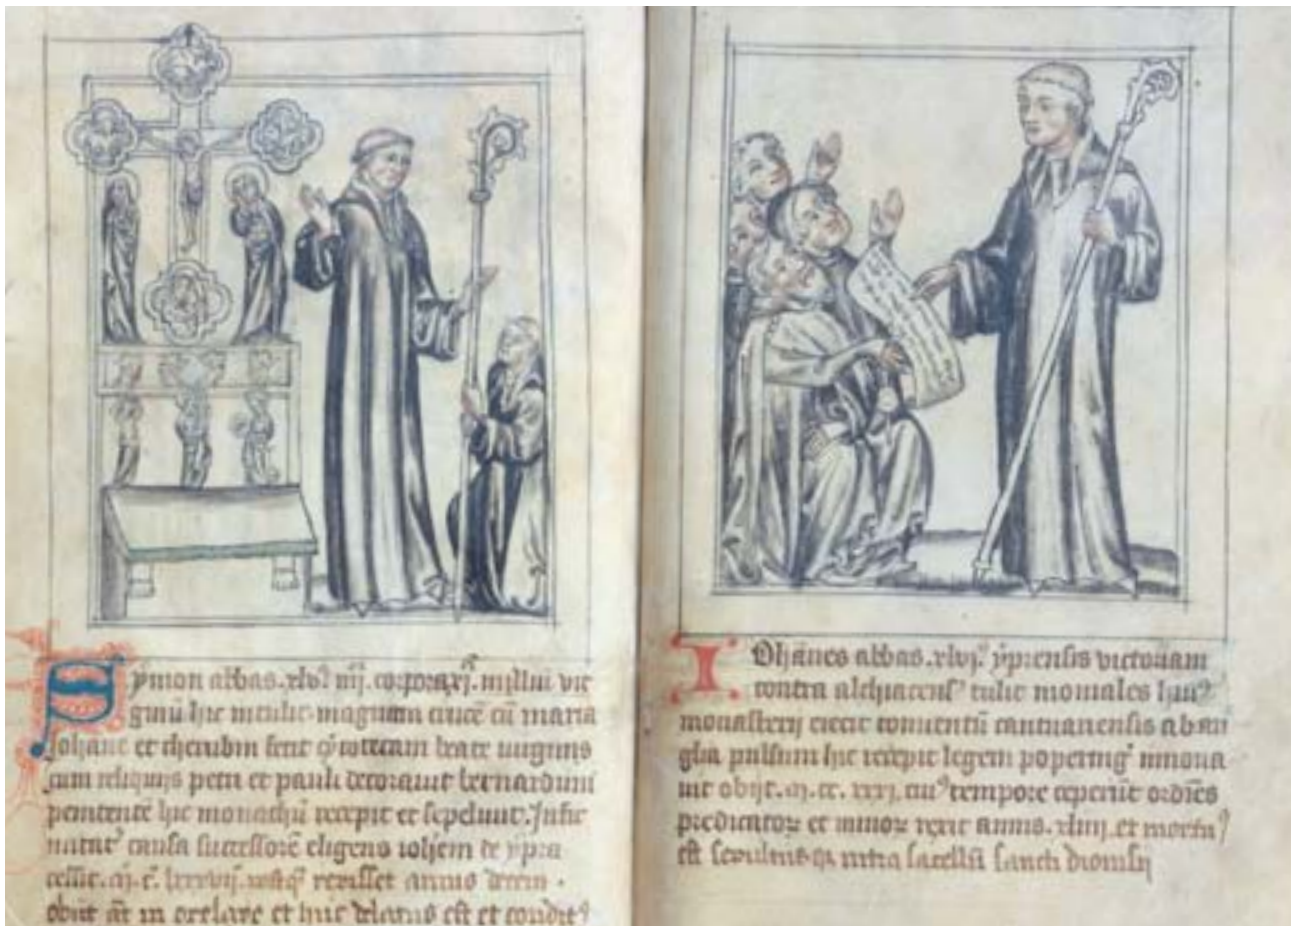 Symon abbas .xlv⁹ iiij. corpora xj. milliū vir
ginū huc intulit. magnam crucē cū maria
Johanne et cherubin fecit
cum reliquijs petri et pauli decorauit bernardum
penitentē hic monachū recepit et sepeliuit. Infir
causa successorē eligens ioh̄em de ypra
cessit. m. c. lxxxvij. rexisset annis decem.
obijt āt in orelare et huc delatus est et condit⁹
Iohānes abbas .xlvj⁹ yprensis victoriam
contra tulit moniales hui⁹
monasterij eiecit conuentū cantuariensis ab an
glia pulsum hic recepit legem poperīg innoua
uit obijt. m. cc. xxx. cui⁹ tempore ceperūt ordīes
predicatoꝝ et minoꝝ rexit annis .xliij. et mortu⁹
est sepultus intra sacellū sancti dionisij